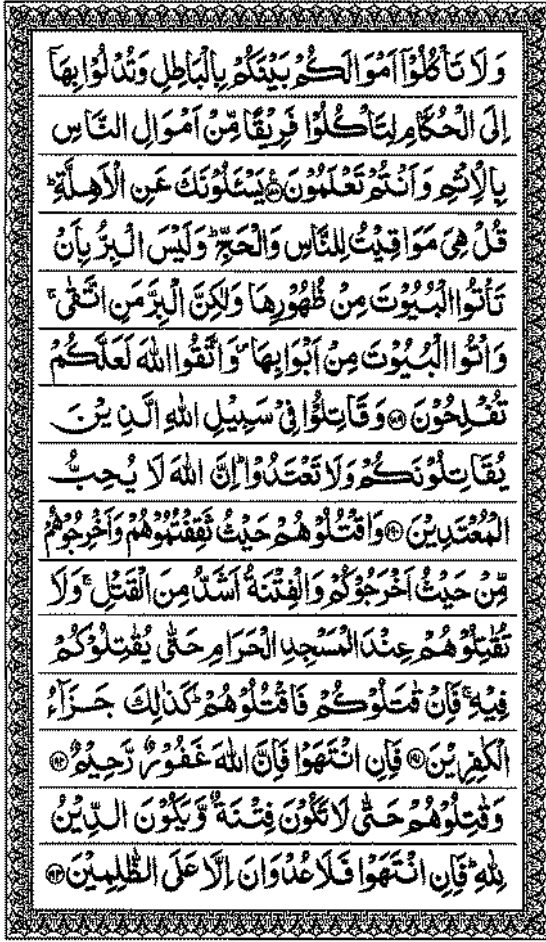 وَلَا تَاْكُلُوْۤا اَمْوَالَكُمْ بَيْنَكُمْ بِالْبَاطِلِ وَتُدْلُوْا بِهَاۤ
اِلَى الْحُكَّامِ لِتَاْكُلُوْا فَرِيْقًا مِّنْ اَمْوَالِ النَّاسِ
بِالْاِثْمِ وَاَنْتُمْ تَعْلَمُوْنَ ﴿۱۸۸﴾ يَسْـَٔلُوْنَكَ عَنِ الْاَهِلَّةِ ؕ
قُلْ هِىَ مَوَاقِيْتُ لِلنَّاسِ وَالْحَجِّ ؕ وَلَيْسَ الْبِرُّ بِاَنْ
تَاْتُوا الْبُيُوْتَ مِنْ ظُهُوْرِهَا وَلٰكِنَّ الْبِرَّ مَنِ اتَّقٰى ۚ
وَاْتُوا الْبُيُوْتَ مِنْ اَبْوَابِهَا ۪ وَاتَّقُوا اللّٰهَ لَعَلَّكُمْ
تُفْلِحُوْنَ ﴿۱۸۹﴾ وَقَاتِلُوْا فِىْ سَبِيْلِ اللّٰهِ الَّذِيْنَ
يُقَاتِلُوْنَكُمْ وَلَا تَعْتَدُوْا ؕ اِنَّ اللّٰهَ لَا يُحِبُّ
الْمُعْتَدِيْنَ ﴿۱۹۰﴾ وَاقْتُلُوْهُمْ حَيْثُ ثَقِفْتُمُوْهُمْ وَاَخْرِجُوْهُمْ
مِّنْ حَيْثُ اَخْرَجُوْكُمْ وَالْفِتْنَةُ اَشَدُّ مِنَ الْقَتْلِ ۚ وَلَا
تُقٰتِلُوْهُمْ عِنْدَ الْمَسْجِدِ الْحَرَامِ حَتّٰى يُقٰتِلُوْكُمْ
فِيْهِ ۚ فَاِنْ قٰتَلُوْكُمْ فَاقْتُلُوْهُمْ ؕ كَذٰلِكَ جَزَآءُ
الْكٰفِرِيْنَ ﴿۱۹۱﴾ فَاِنِ انْتَهَوْا فَاِنَّ اللّٰهَ غَفُوْرٌ رَّحِيْمٌ ﴿۱۹۲﴾
وَقٰتِلُوْهُمْ حَتّٰى لَا تَكُوْنَ فِتْنَةٌ وَّيَكُوْنَ الدِّيْنُ
لِلّٰهِ ؕ فَاِنِ انْتَهَوْا فَلَا عُدْوَانَ اِلَّا عَلَى الظّٰلِمِيْنَ ﴿۱۹۳﴾